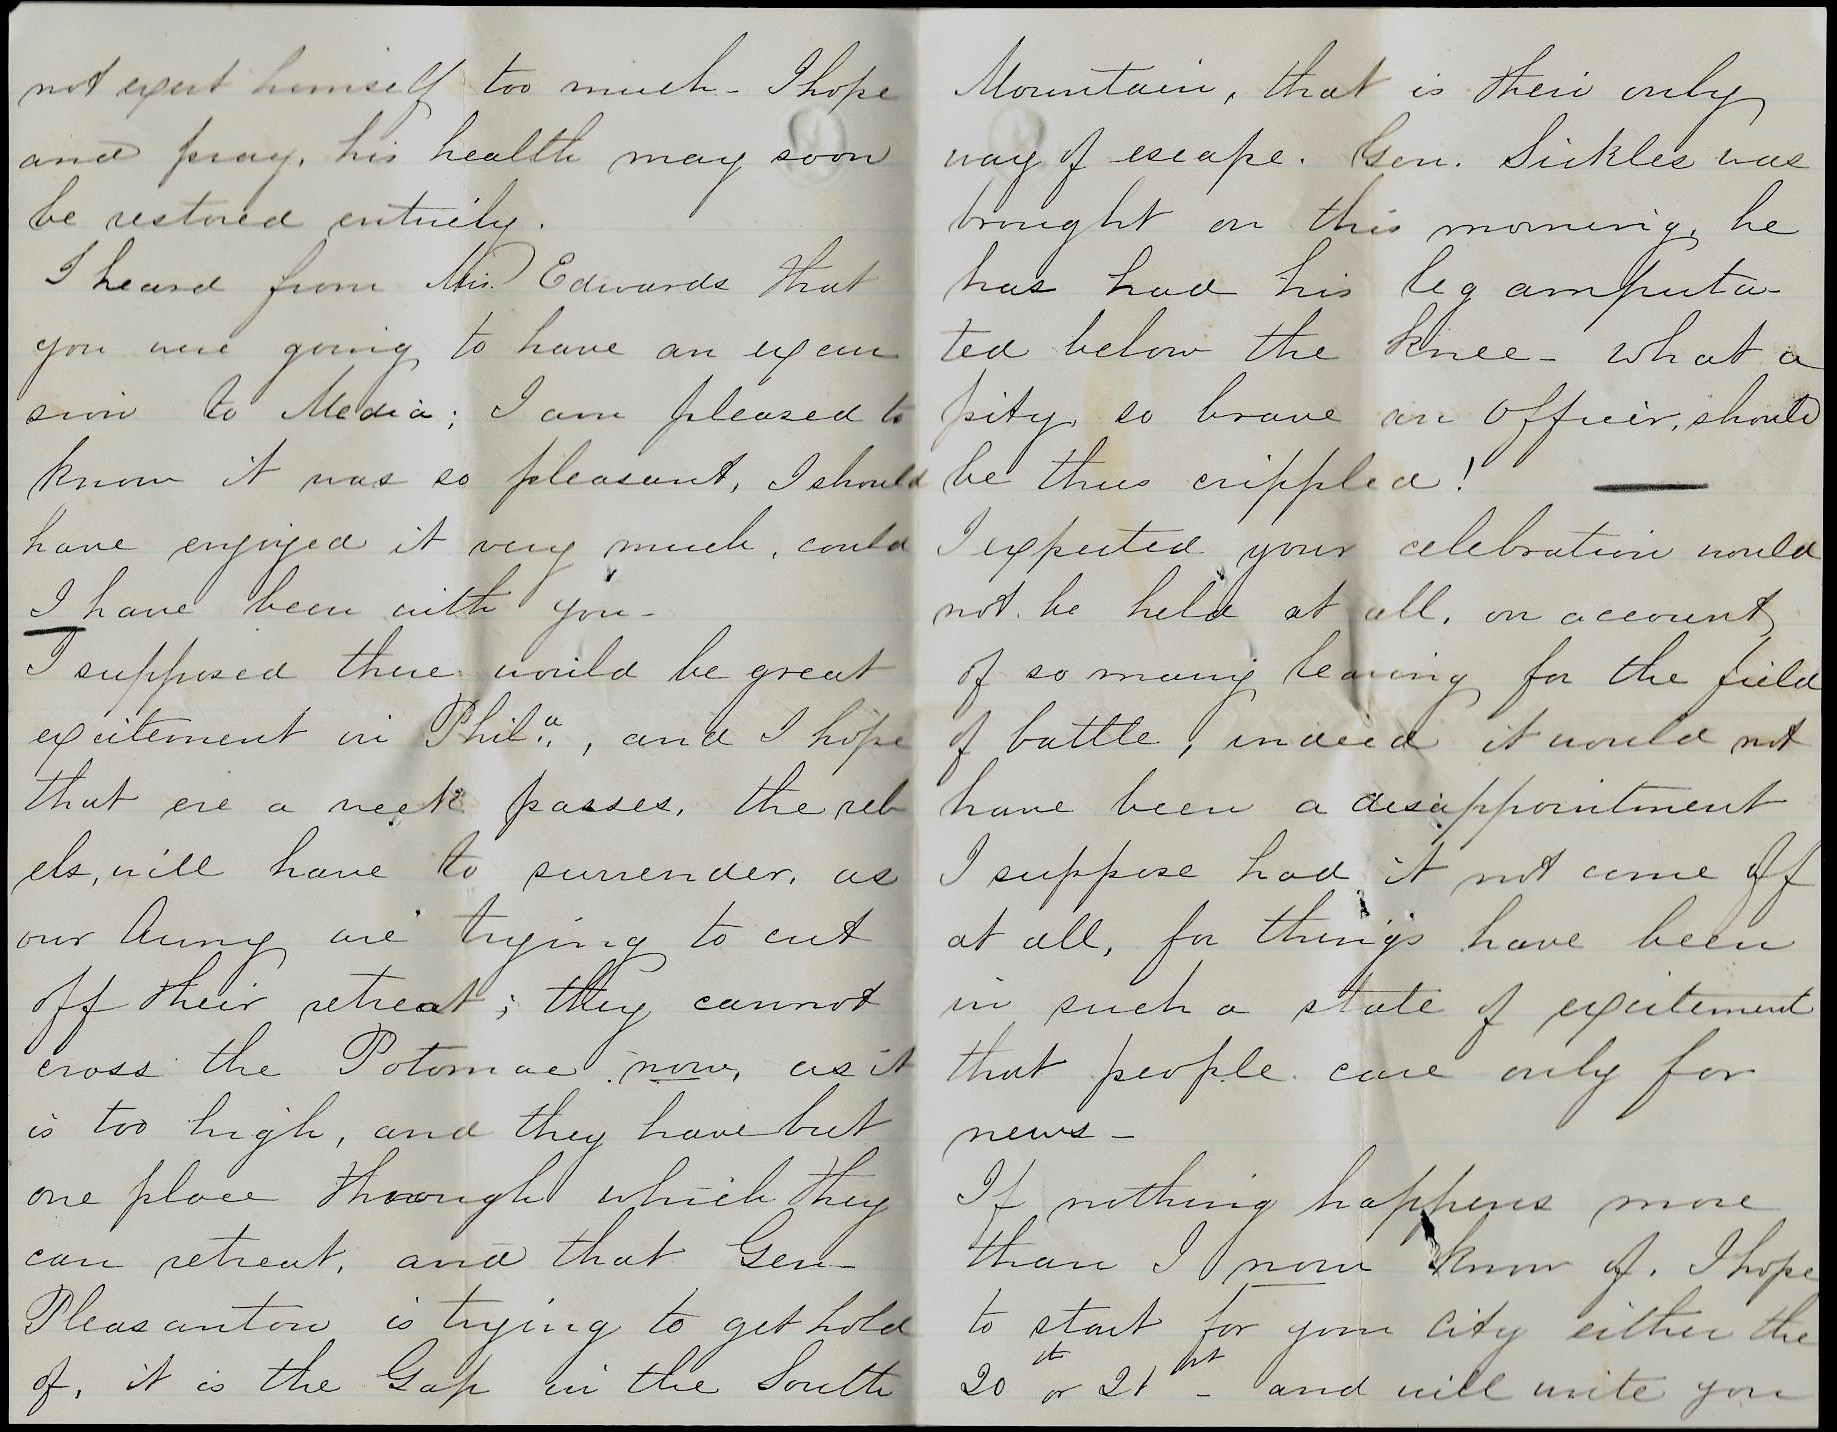 not exert himself too much - I hope
and pray, his health may soon
be restored entirely.
I heard from Mrs. Edwards that
you were going to have an excur
sion to Media; I am pleased to
know it was so pleasant, I should
have enjoyed it very much, could
I have been with you -
I supposed there would be great
excitement in Phila., and I hope
that ere a week passes, the reb
els, will have to surrender, as
our Army are trying to cut
off their retreat; they cannot
cross the Potomac now, as it
is too high, and they have but
one place through which they
can retreat, and that Gen -
Pleasanton is trying to get hold
of, it is the Gap in the South
Mountain, that is their only
way of escape. Gen. Sickles was
brought on this morning, he
has had his leg amputa-
ted below the knee - what a
pity, so brave an officer, should
be thus crippled! —
I expected your celebration would
not be held at all, on account
of so many leaving for the field
of battle, indeed it would not
have been a disappointment
I suppose had it not come off
at all, for things have been
in such a state of excitement
that people care only for
news -
If nothing happens more
than I now know of, I hope
to start for your city either the
20th or 21st - and will write you